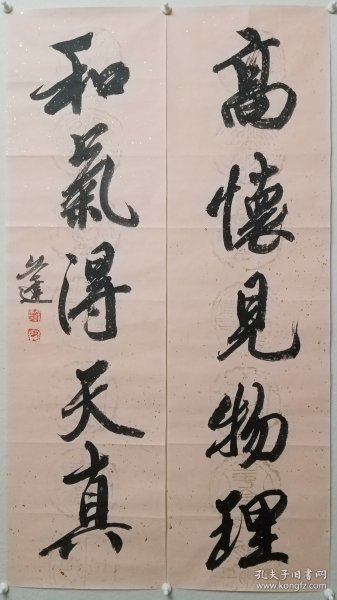 高懷見物理
和氣得天真
孔夫子旧书网
www.kongfz.com